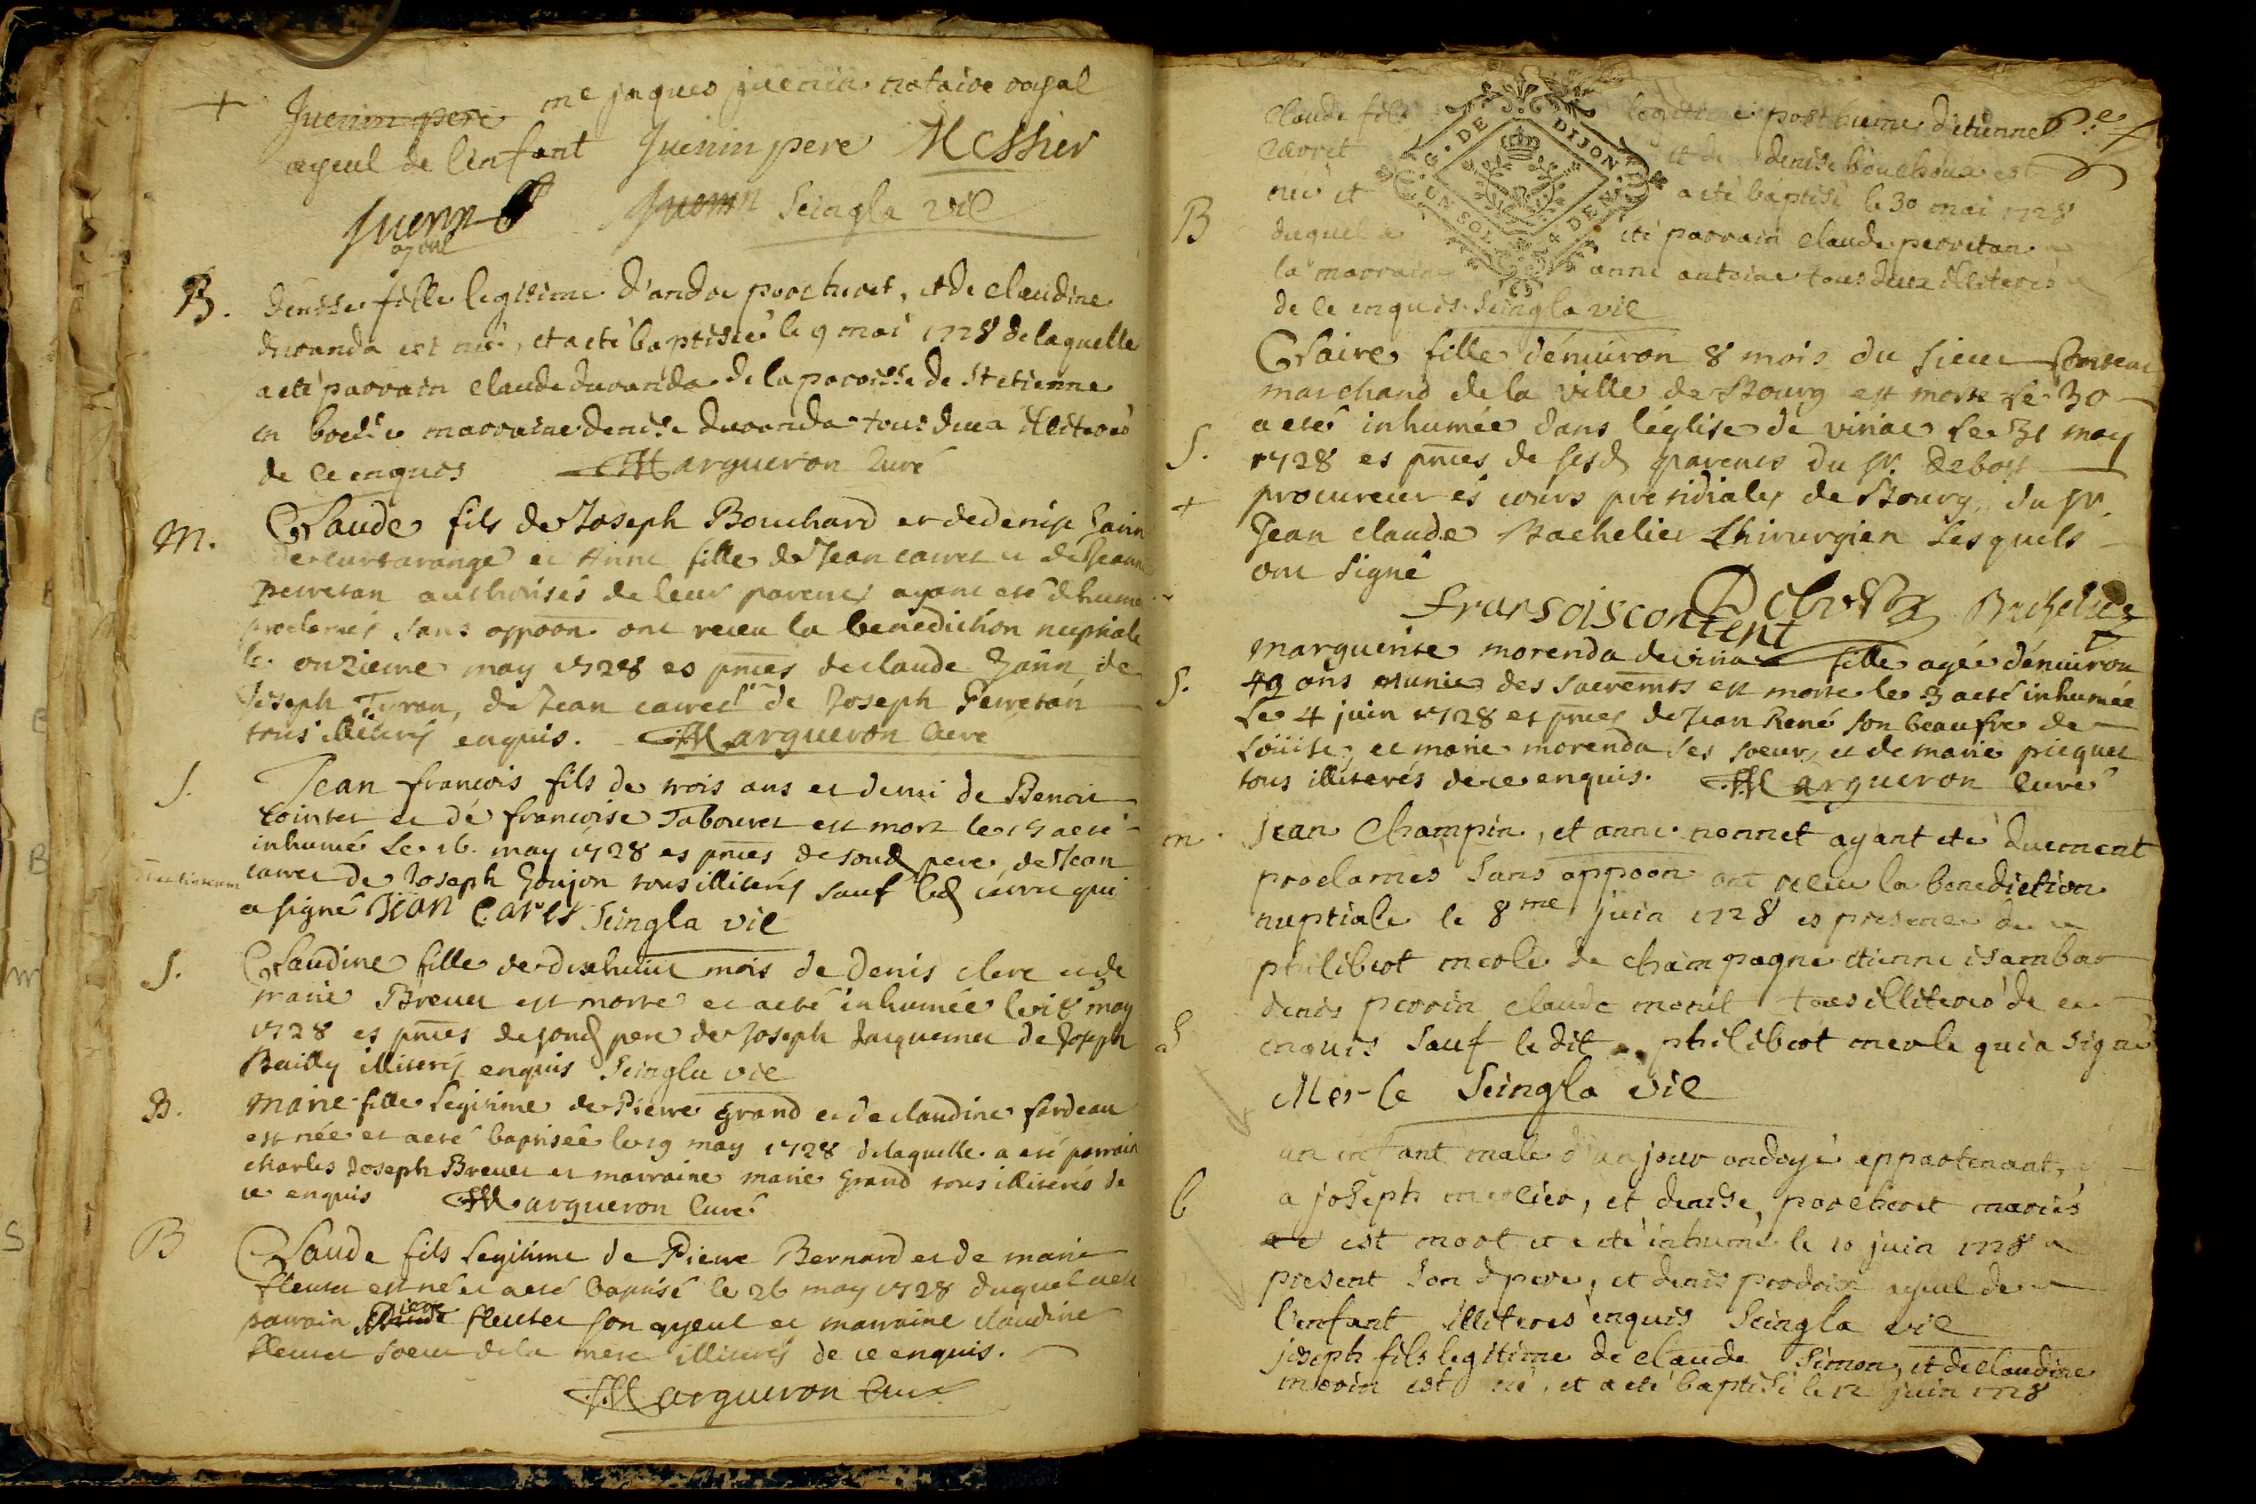 + Juenin pere me jaques juenin notaire royal
ayeul de l'enfant Juenin pere Messier
Juenin Juenin Seingla vic
ayeul
B. denise fille legitime d'andre porcheret, et de claudine
duranda est née, et a eté baptisée le 9 mai 1728 de laquelle
a eté parrain claude duranda de la paroisse de St etienne
en marraine denise duranda tous deux illiterés
de ce enquis Margueron Curé
M. Claude fils de Joseph Bouchard et de denise
de curtarange et Anne fille de Jean cavret et de Jeanne
perretan authorisés de leur parents ayant eté dhument
proclamés sans oppoon ont receu la benediction nuptiale
le onzieme may 1728 es pnces de claude de
Joseph Tyran, de Jean cavret de Joseph Perretan
tous illiterés enquis. Margueron Cure
S. Jean francois fils de trois ans et demi de Benoit
cointet et de francoise Tabouret est mort le 15 a eté
inhumé Le 16 may 1728 es pnces de sond pere de Jean
cavret de Joseph Goujon tous illiterés sauf led cavret qui
a signé Jean Caret Seingla vic
S. Claudine fille de dixhuit mois de Denis clerc et de
marie Brevet est morte et a eté inhumée le 18 may
1728 es pnces de sond pere de Joseph Jacquemet de Joseph
Bailly illiterés enquis Seingla vic
B. Marie fille Legitime de Pierre grand et de claudine fardeau
est née et a eté baptisée le 19 may 1728 de laquelle a eté parrain
charles Joseph Brevet et marraine marie Grand tous illiterés de
ce enquis Margueron Curé
B Claude fils Legitime de Pierre Bernard et de marie
fleutet est né et a eté baptisé le 26 may 1728 duquel a eté
parrain Pierre fleutet son ayeul et marraine claudine
fleutet soeur de la mere illiterés de ce enquis.
Margueron Cure
G. DE DIJON
CONSOL & DENI
claude fils legitime posthume d'etienne
cavret et de denise bouchoux est
né et a eté baptisé le 30 mai 1728
B duquel a eté parrain claude perretan
la marraine anne antoine tous deux illiterés
de ce enquis Seingla vic
Claire fille d'environ 8 mois du sieur Content
marchand de la ville de Bourg est morte Le 30
a eté inhumée dans l'église de viriat Le 31 may
S. 1728 es pnces de sesd parents du sr. Debost
+ procureur és cours presidiales de Bourg, du sr.
Jean claude Bachelier Chirurgien Lesquels
ont signé
fransois content Debost Bachelier
marguerite morenda de viriat fille agée d'environ
S. 49 ans munie des sacremts est morte le 3 a eté inhumée
Le 4 juin 1728 es pnces de Jean René son beaufre de
Loüise et marie morenda ses soeurs et de marie picquet
tous illiterés de ce enquis. Margueron Curé
m. jean Champin, et anne nonnet ayant eté duement
proclames sans oppoon ont receu la benediction
nuptiale le 8me juin 1728 es presence de
philibert merle de champagne etienne isambar
denis perrin claude morel tous illiterés de ce
enquis sauf le dit philibert merle qui a signé
Merle Seingla vic
un enfant male d'un jour ondoyé appartenant
a joseph merlier, et denise porcheret mariés
est mort et a eté inhumé le 10 juin 1728
present son d pere, et denis ayeul de
l'enfant illiteres enquis Seingla vic
joseph fils legitime de claude Simon, et de claudine
morin est né, et a eté baptisé le 12 juin 1728